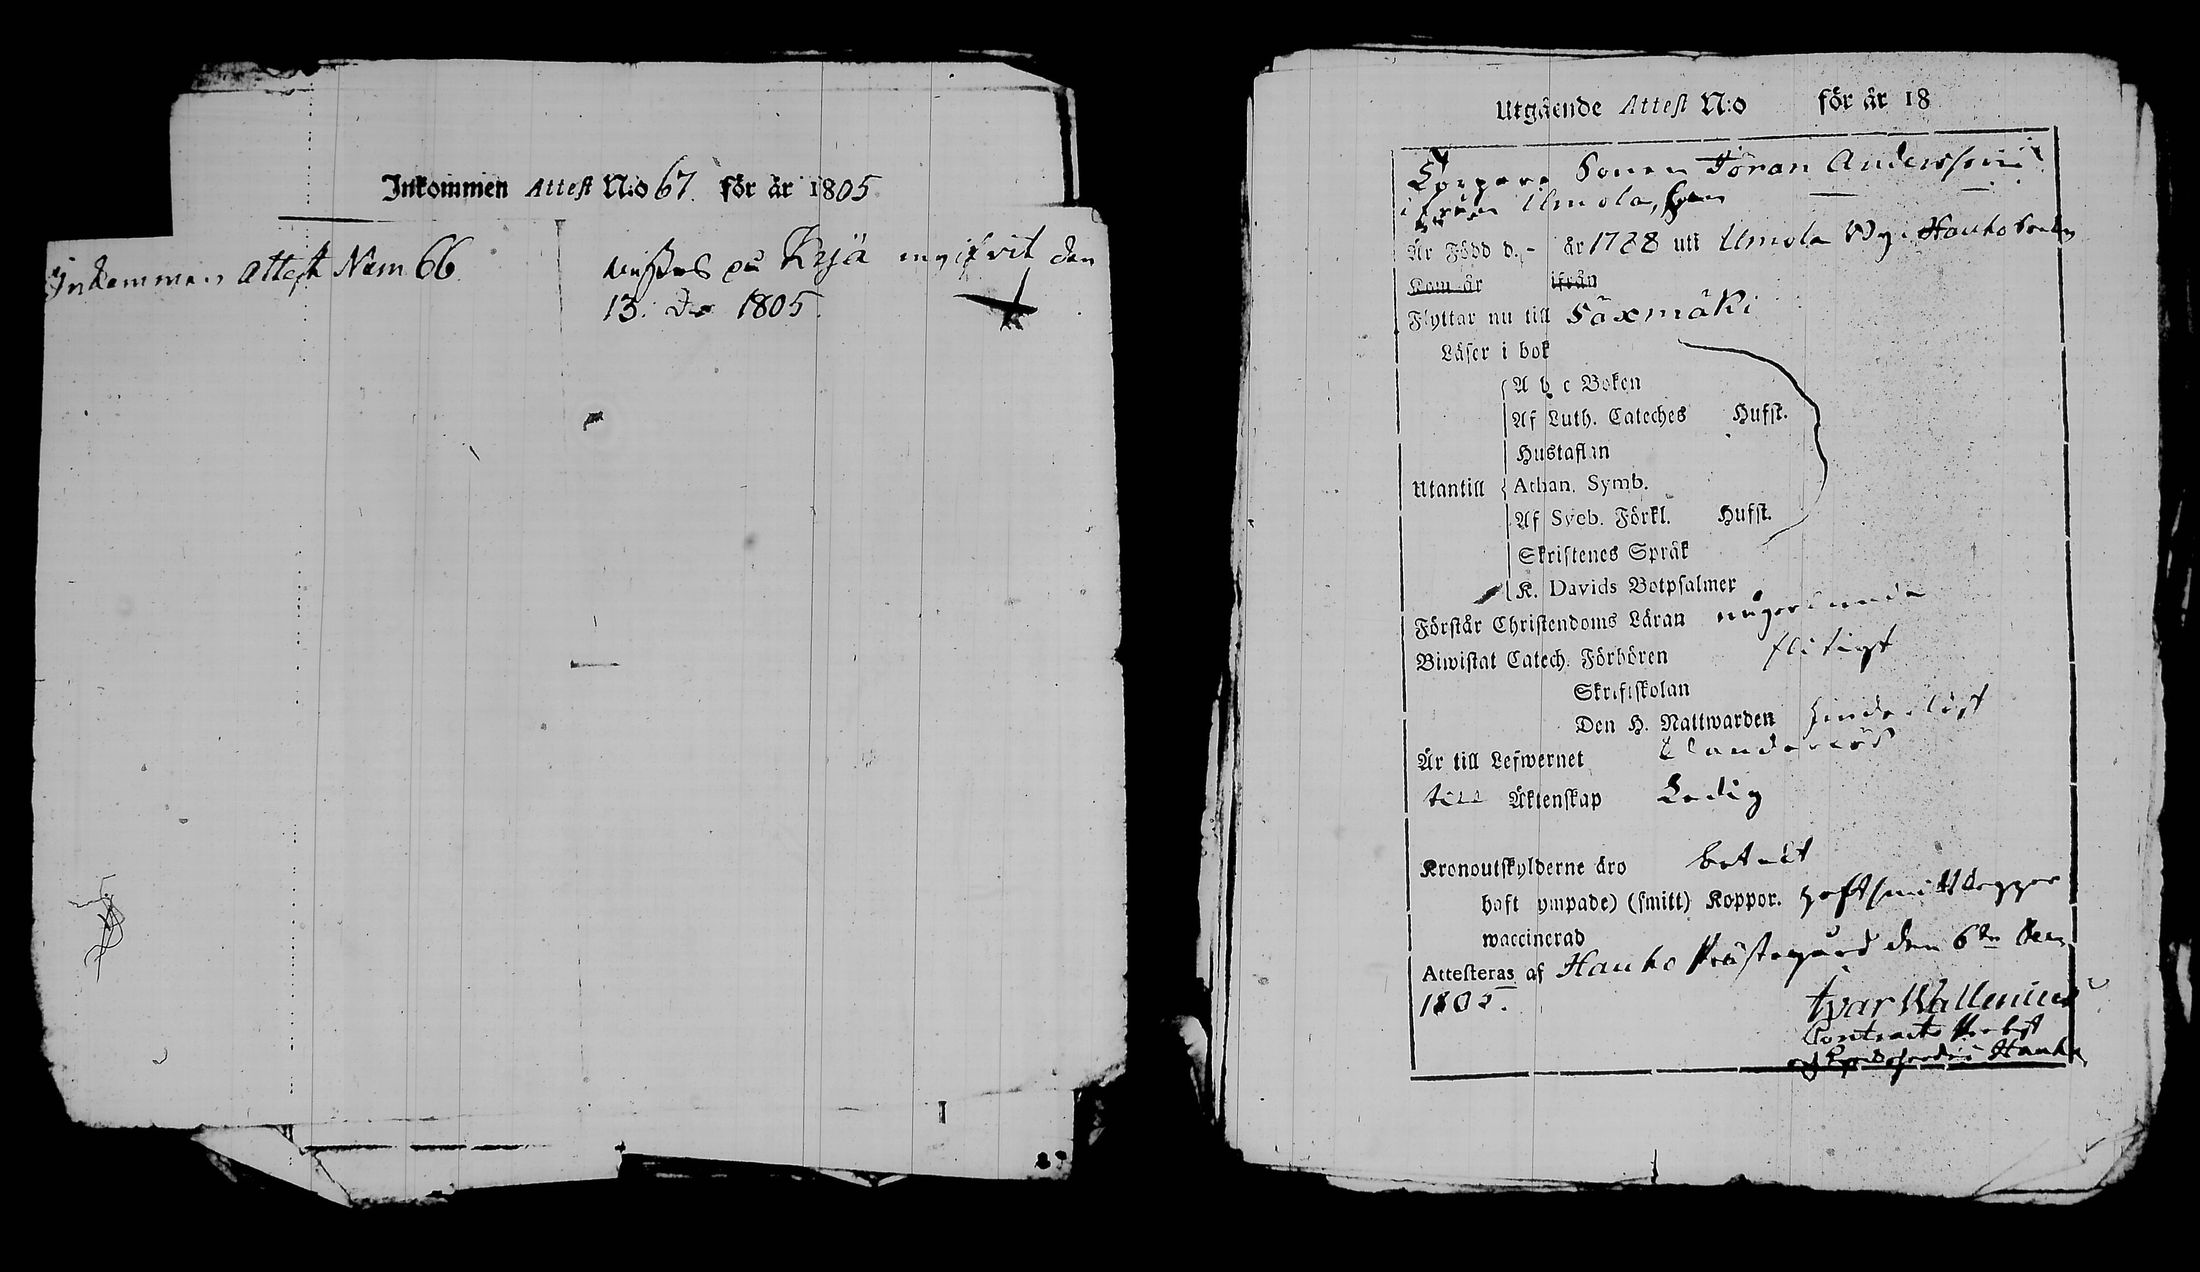 Inkommen Attest N:o 67. för år 1805
Inkommen attest Num 66
på Krjä ingifvit den
13. 1805.
Utgående Attest N:o för år 18
Sonen Jöran Andersson
ifrån Umola,
Är Född d. - år 1788 uti Umola By i Hauho Sockn
Kom år ifrån
Flyttar nu till Säxmäki
Läser i bok
A b c Boken
Af Luth. Cateches Hufst.
Hustaflan
Utantill Athan. Symb.
Af Sveb. Förkl. Hufst.
Skriftenes Språk
K. Davids Botpsalmer
Förstår Christendoms Läran någorlunda
Biwistat Catech. Förhören flitigt
Skriftskolan
Den H. Nattwarden hinderlöst
Är till Lefwernet klanderlös
till Äktenskap Ledig
Kronoutskylderne äro betalt
haft ympade) (smitt) Koppor. haft smittkoppor
waccinerad
Attesteras af Hauho Prästegård den 6te
1805.
Ivar Wallenius
Contracts Probst
och Kyrkoherde i Hauho